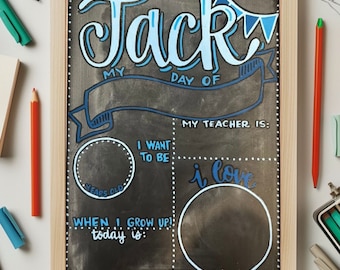 Jack
MY DAY OF
MY TEACHER IS:
I WANT
TO BE
YEARS OLD
i love
WHEN I GROW UP!
today is: